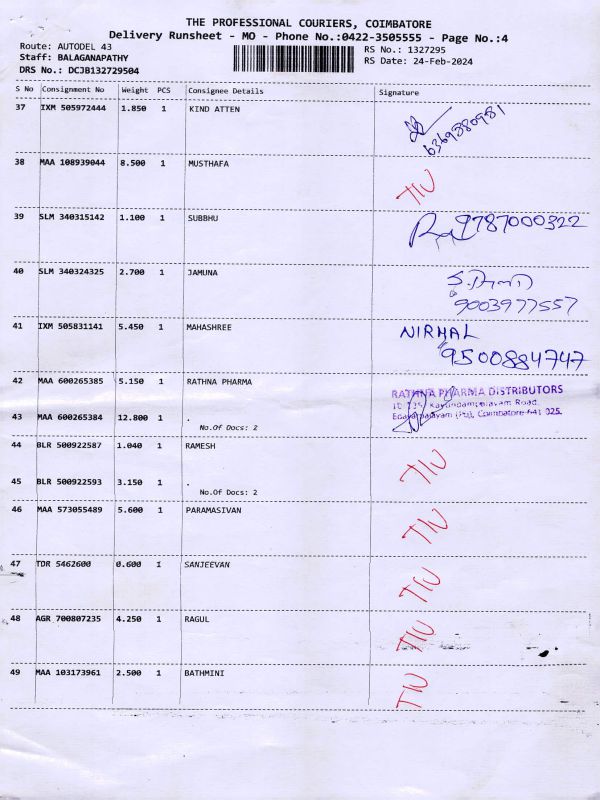 THE PROFESSIONAL COURIERS, COIMBATORE
Delivery Runsheet - MO - Phone No.:0422-3505555 - Page No.:4
Route: AUTODEL 43 RS No.: 1327295
Staff: BALAGANAPATHY RS Date: 24-Feb-2024
DRS No.: DCJB132729504
S No Consignment No Weight PCS Consignee Details Signature
37 IXM 505972444 1.850 1 KIND ATTEN
6369380981
38 MAA 108939044 8.500 1 MUSTHAFA
39 SLM 340315142 1.100 1 SUBBHU 9787000322
40 SLM 340324325 2.700 1 JAMUNA
9003977557
41 IXM 505831141 5.450 1 MAHASHREE NIRMAL
9500884747
42 MAA 600265385 5.150 1 RATHNA PHARMA RATHNA PHARMA DISTRIBUTORS
Road,
Coimbatore-641 025.
43 MAA 600265384 12.800 1 .
No.Of Docs: 2
44 BLR 500922587 1.040 1 RAMESH
45 BLR 500922593 3.150 1 .
No.Of Docs: 2
46 MAA 573055489 5.600 1 PARAMASIVAN
47 TDR 5462600 0.600 1 SANJEEVAN
48 AGR 700807235 4.250 1 RAGUL
49 MAA 103173961 2.500 1 BATHMINI